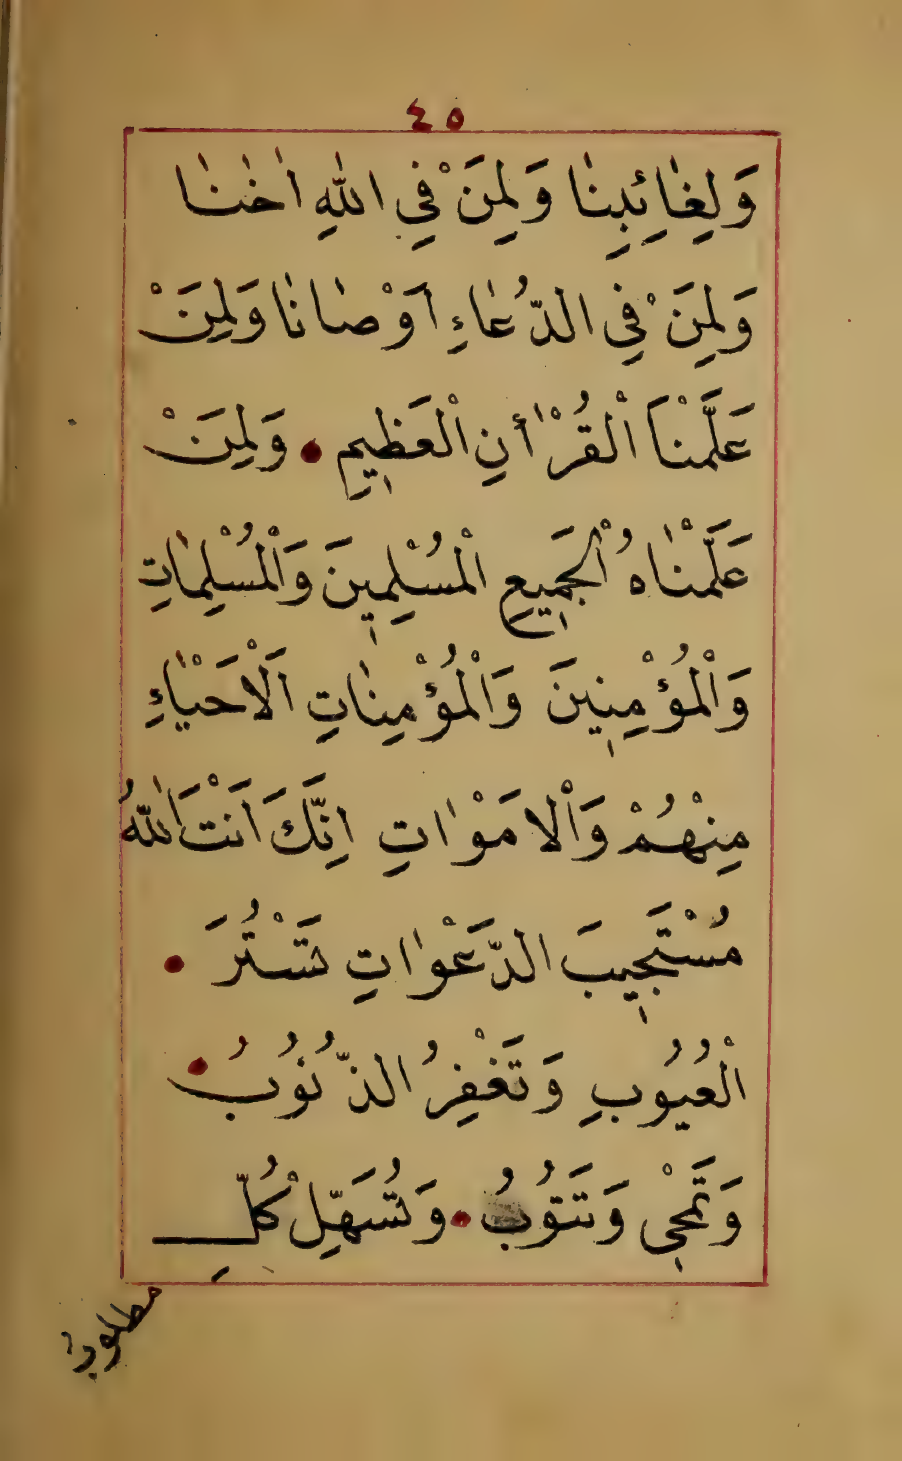 ٤٥
وَلِغٰائِبِنٰا وَلِمَنْ فِي اللّٰهِ اٰخٰنٰا
وَلِمَنْ فِي الدُّعٰاءِ اَوْصٰانٰا وَلِمَنْ
عَلَّمْنَا الْقُرْاٰنِ الْعَظِيمِ • وَلِمَنْ
عَلَّمْنٰاهُ الْجَمِيعِ الْمُسْلِمِينَ وَالْمُسْلِمٰاتِ
وَالْمُؤْمِنِينَ وَالْمُؤْمِنٰاتِ اَلْاَحْيٰاءِ
مِنْهُمْ وَالْاَمَوْاتِ اِنَّكَ اَنْتَ اللّٰهُ
مُسْتَجِيبَ الدَّعَوْاتِ تَسْتُرَ •
الْعُيُوبِ وَتَغْفِرُ الذُّنُوبُ •
وَتَمْحِي وَتَتَوُبُ • وَتُسَهِّلْ كُلِّ
مطلوب